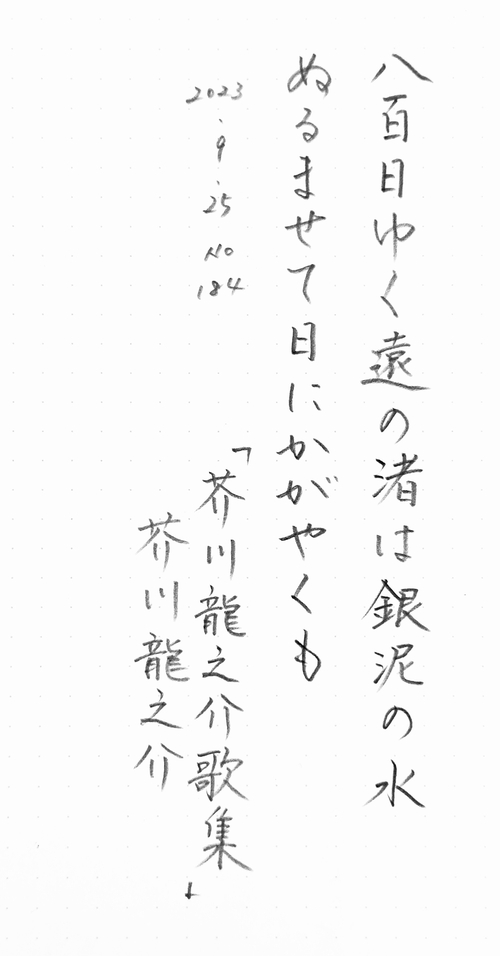 八百日ゆく遠の渚は銀泥の水
ぬるませて日にかがやくも
2023.9.25 No 184
「芥川龍之介歌集」
芥川龍之介